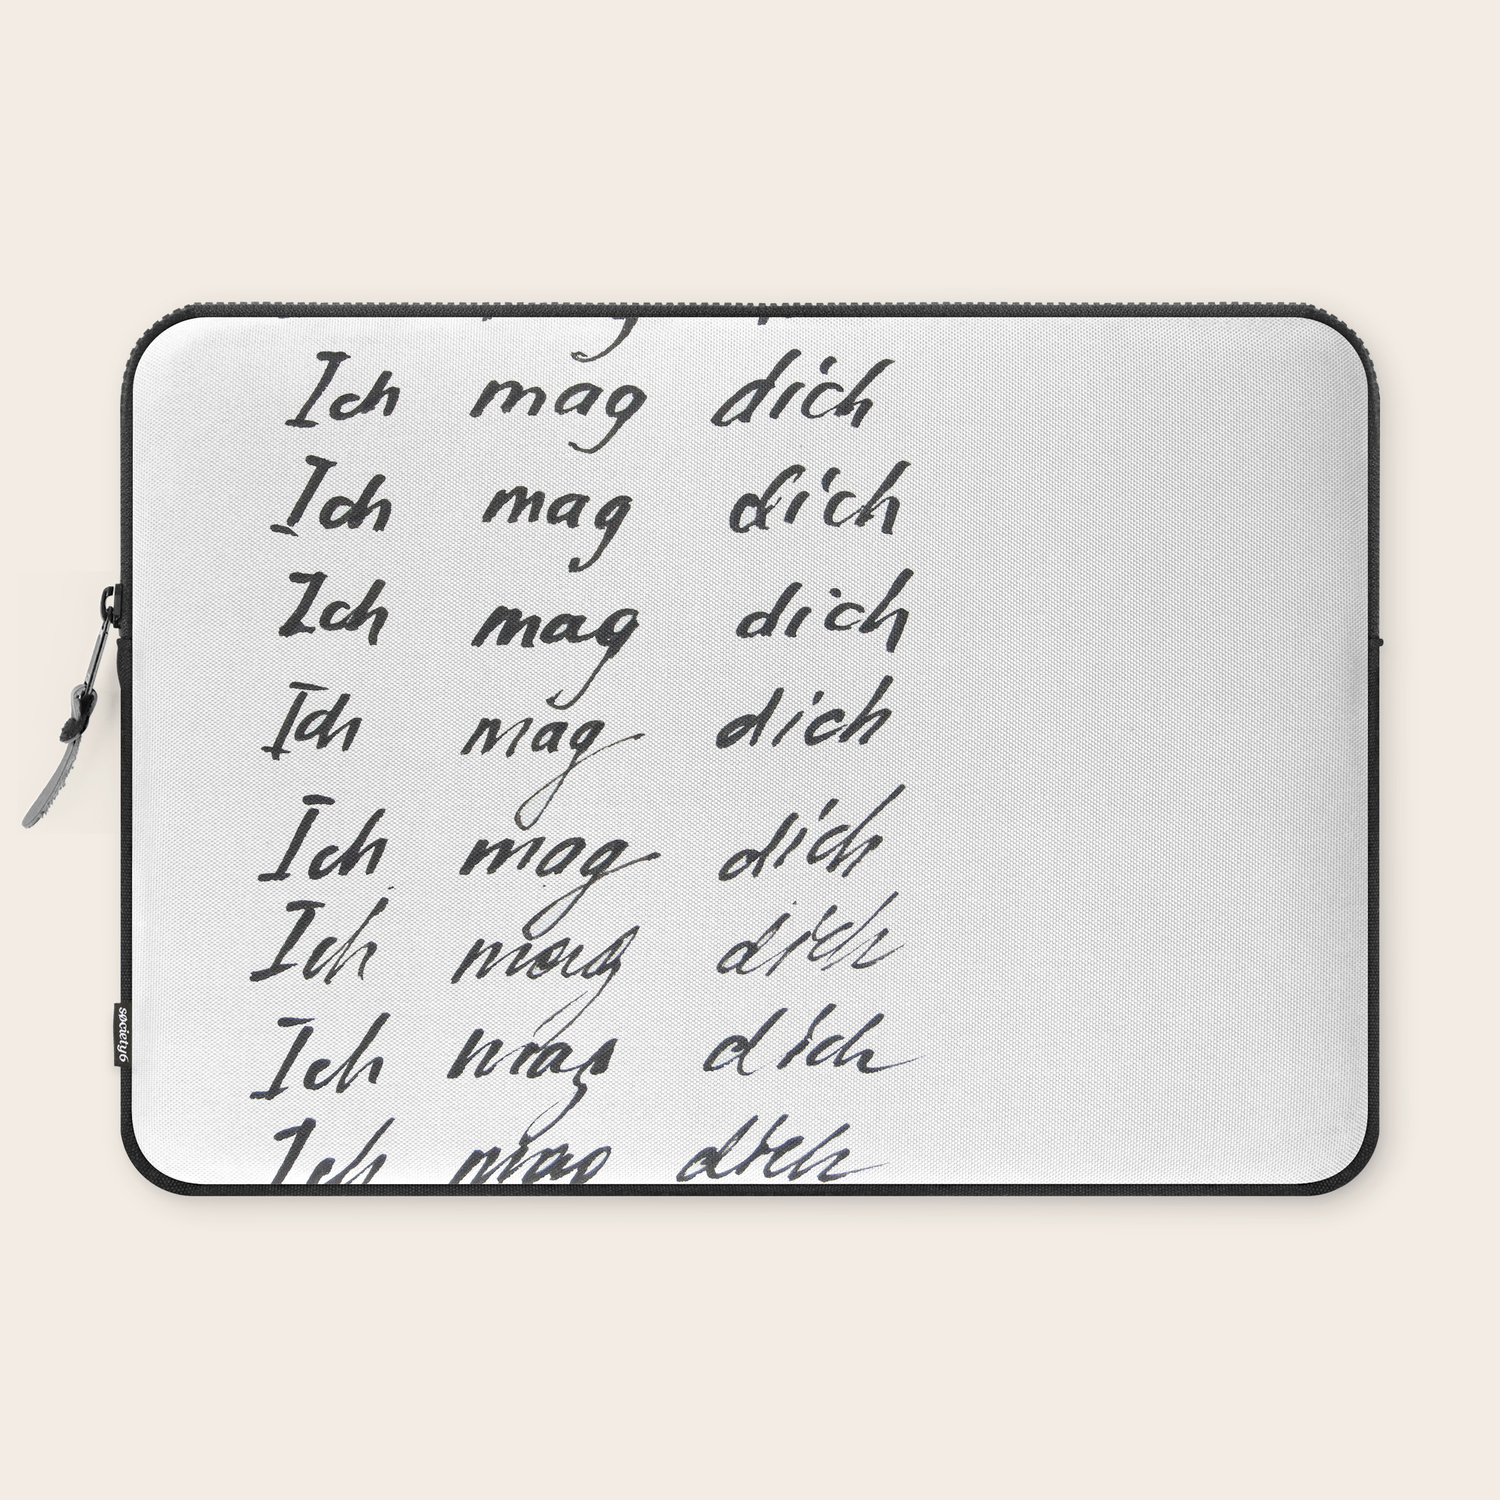 Ich mag dich
Ich mag dich
Ich mag dich
Ich mag dich
Ich mag dich
Ich mag dich
Ich mag dich
Ich mag dich
society6